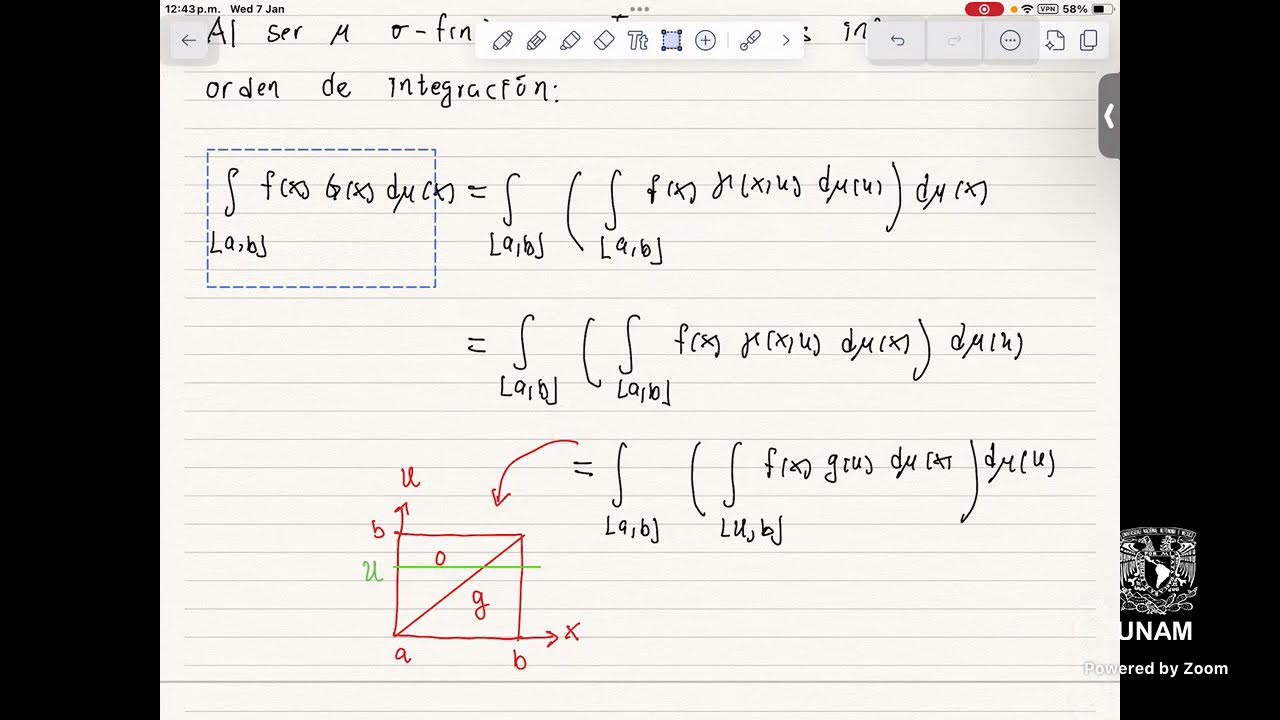 12:43 p.m. Wed 7 Jan
VPN 58%
Al ser μ σ-fini
orden de integración:
∫[a,b] f(x) G(x) dμ(x) = ∫[a,b] ( ∫[a,b] f(x) γ(x,u) dμ(u) ) dμ(x)
= ∫[a,b] ( ∫[a,b] f(x) γ(x,u) dμ(x) ) dμ(u)
= ∫[a,b] ( ∫[u,b] f(x) g(u) dμ(x) ) dμ(u)
u
b
0
u
g
x
a b
UNAM
Powered by Zoom